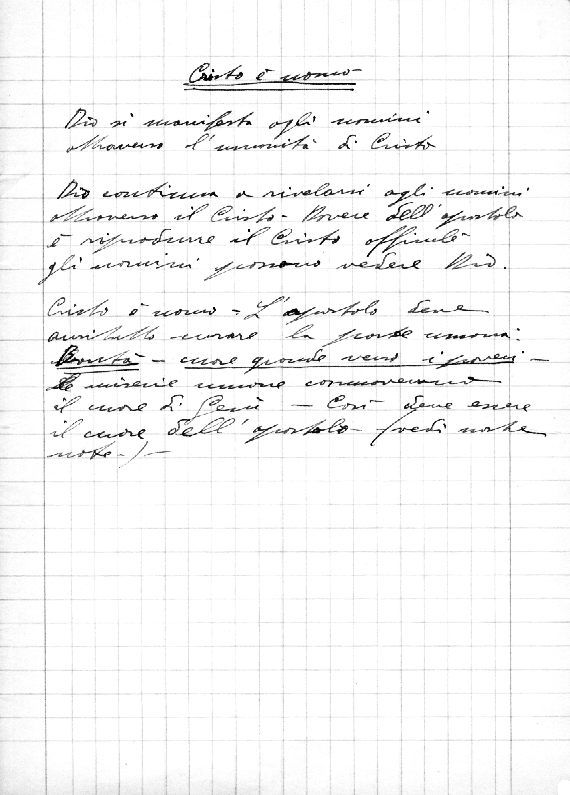 Cristo è uomo
Dio si manifesta agli uomini
attraverso l'umanità di Cristo
Dio continua a rivelarsi agli uomini
attraverso il Cristo - Dovere dell'apostolo
è riprodurre il Cristo affinché
gli uomini possano vedere Dio.
Cristo è uomo - L'apostolo deve
curare la parte umana:
Bontà - cuore grande verso i poveri -
Le miserie umane commovevano
il cuore di Gesù - Così deve essere
il cuore dell'apostolo - (vedi
note -) -